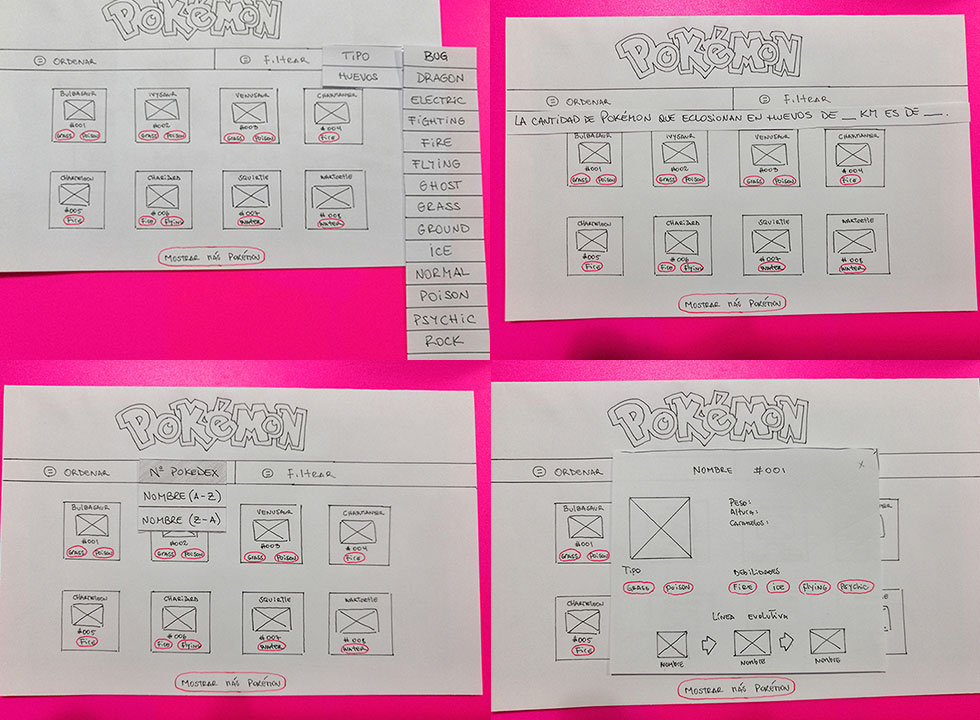 POKÉMON
ORDENAR
FiLtRAR
TIPO
HUEVOS
BUG
DRAGON
ELECTRIC
FiGHTiNG
FiRE
FLYiNG
GHOST
GRASS
GROUND
iCE
NORMAL
POiSON
PSYCHiC
ROCK
BULBASAUR
#001
GRASS POISON
IVYSAUR
#002
GRASS POISON
VENUSAUR
#003
GRASS POISON
CHARMANDER
#004
FiRE
CHARMELEON
#005
FiRE
CHARIZARD
#006
FiRE FlYiNg
SQUIRTLE
#007
WATER
WARTORTLE
#008
WATER
MOSTRAR MÁS POKÉMON
POKÉMON
ORDENAR
FiLtRAR
LA CANTIDAD DE POKÉMON QUE ECLOSIONAN EN HUEVOS DE __ KM ES DE __.
BULBASAUR
#001
GRASS POISON
IVYSAUR
#002
GRASS POISON
VENUSAUR
#003
GRASS POISON
CHARMANDER
#004
FiRE
CHARMELEON
#005
FiRE
CHARIZARD
#006
FiRE FlYiNg
SQUIRTLE
#007
WATER
WARTORTLE
#008
WATER
MOSTRAR MÁS POKÉMON
POKÉMON
ORDENAR
Nº POKEDEX
NOMBRE (A-Z)
NOMBRE (Z-A)
FiLtRAR
BULBASAUR
#001
GRASS POISON
#002
GRASS POISON
VENUSAUR
#003
GRASS POISON
CHARMANDER
#004
FiRE
CHARMELEON
#005
FiRE
CHARIZARD
#006
FiRE FlYiNg
SQUIRTLE
#007
WATER
WARTORTLE
#008
WATER
MOSTRAR MÁS POKÉMON
POKÉMON
ORDENAR
BULBASAUR
#001
GRASS POISON
CHARMELEON
#005
FiRE
NOMBRE #001
x
Peso:
Altura:
Caramelos:
TIPO
GRASS POISON
DEBILIDADES
FiRE iCE FlYiNG PSYCHiC
LÍNEA EVOLUTIVA
Nombre
Nombre
Nombre
MOSTRAR MÁS POKÉMON